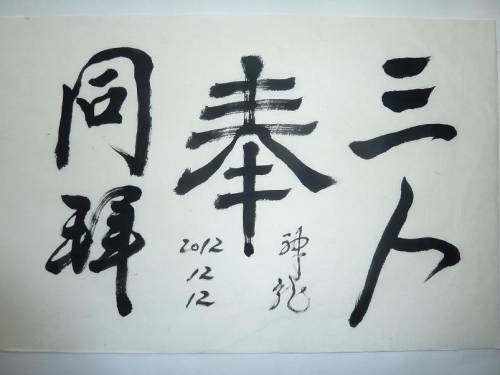 三人
奉
神龙
2012
12
12
同拜